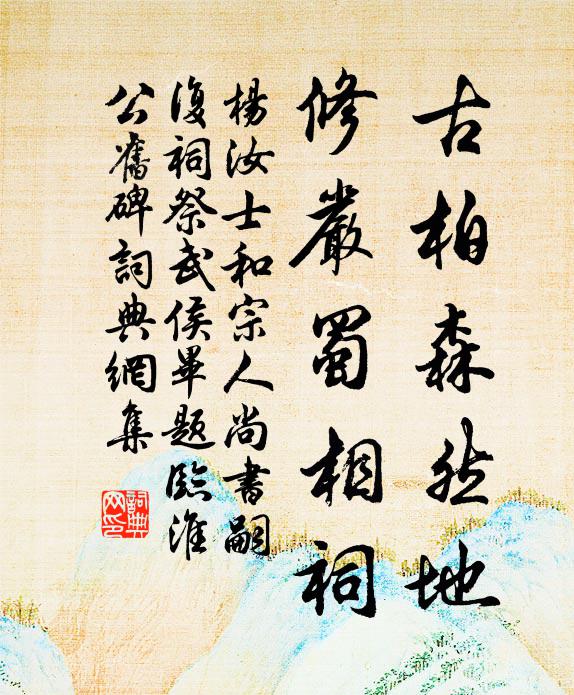 古柏森然地
修嚴蜀相祠
楊汝士和宗人尚書嗣
復祠祭武侯畢題臨淮
公舊碑詞典網集
詞典
网印